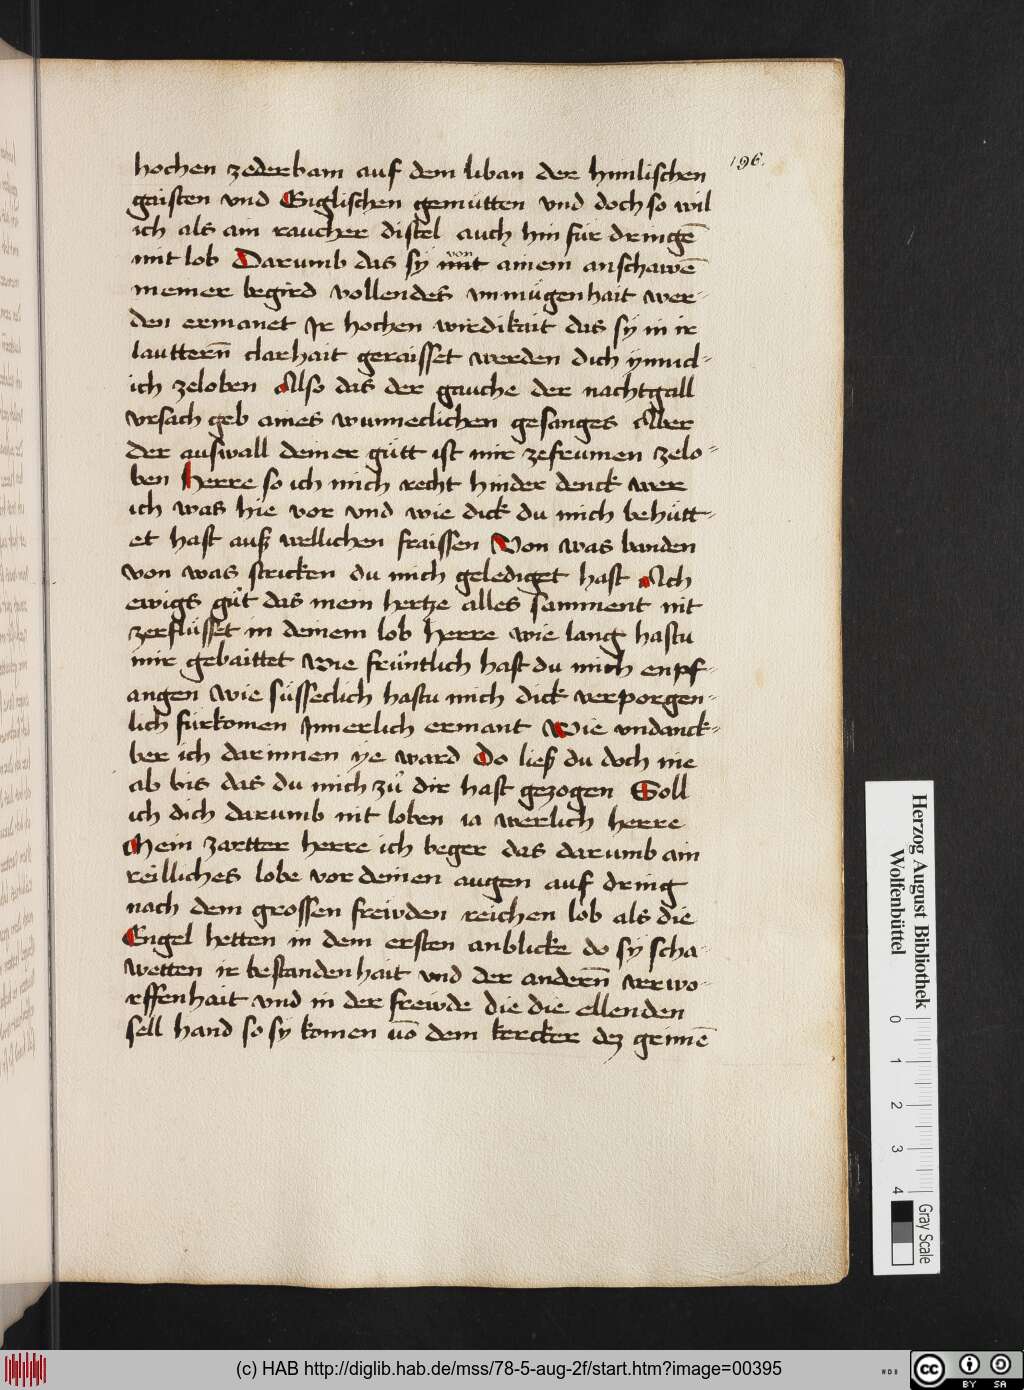 196.
hochen zederbam auf dem liban der himlischen
gaisten vnd Englischen gemütten vnd doch so wil
ich als ain raucher distel auch hin für dringē
mit lob Darumb das sy mit von ainem anschawē
meiner begird vollendes vnmügenhait wer-
den ermanet Ir hochen wirdikait das sy in ir
lautterñ clarhait geraisset werden dich ynnicl-
ich zeloben Also das der gauche der nachtgall
vrsach geb aines wunneclichen gesanges Aber
der auswall deiner gütt ist mir zefrumen zelo-
ben Herre so ich mich recht hinder denck wer
ich was hie vor vnd wie dick du mich behütt-
et hast auß wellichen fraissen Von was banden
von was stricken du mich gelediget hast Ach
ewigs gůt das mein hertze alles samment nit
zerflüsset in deinem lob herre wie lang hastu
mir gebaittet Wie früntlich hast du mich enpf-
angen wie süsseclich hastu mich dick verporgen-
lich fürkomen Innerlich ermant Wie vndanck-
ber ich darinnen ye ward Do ließ du doch nie
ab bis das du mich zů dir hast gezogen Soll
ich dich darumb nit loben ia werlich herre
Mein zartter herre ich beger das darumb ain
reilliches lobe vor deinen augen auf dring
nach dem grossen freivden reichen lob als die
Engel hetten in dem ersten anblicke do sy scha-
wetten ir bestandenhait vnd der anderñ verwo-
rffenhait vnd in der frewde die die ellenden
sell hand so sy komen vō dem kercker dez grimē
Herzog August Bibliothek
Wolfenbüttel
0 1 2 3 4
Gray Scale
(c) HAB http://diglib.hab.de/mss/78-5-aug-2f/start.htm?image=00395
WDB
cc BY SA